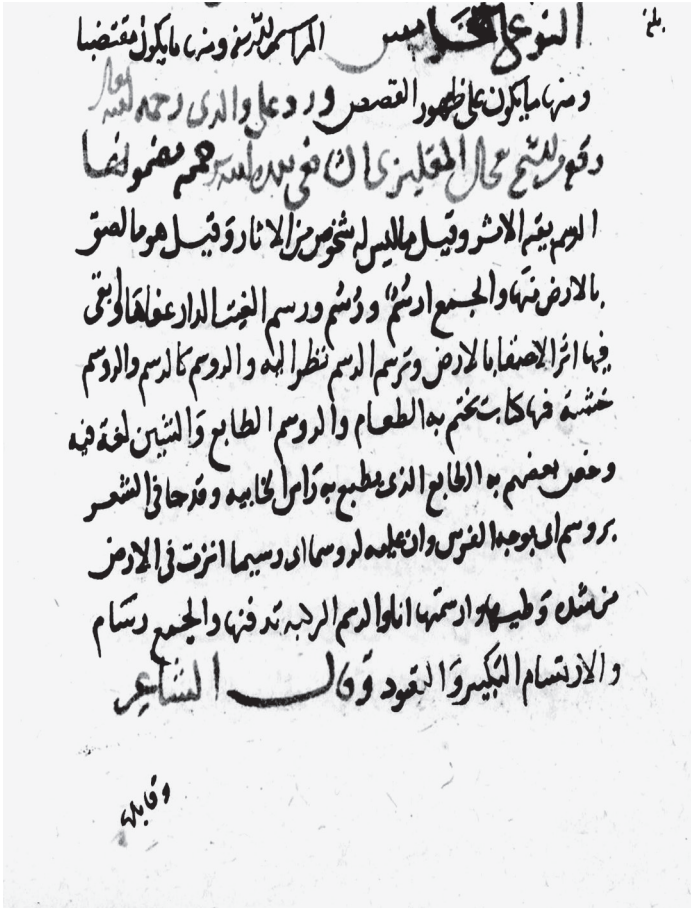 بلغ
النوع الخامس المراسم للدينه ومنها ما يكون مقتضبا
ومنها ما يكون على ظهور القصص ورد على والدى رحمه الله
وقع للشيخ مضمونها
الرسم بقية الاثر وقيل ما ليس له شخوص من الاثار وقيل هو ما لصق
بالارض منها والجمع ارسم ورسوم ورسم الغيث الدار عفاها وابقى
فيها اثرا لاصقا بالارض وترسم الرسم نظر اليه والروسم كالرسم والروسم
خشبة فيها كتاب يختم به الطعام والروسم الطابع والشين لغة فيه
وخص بعضهم به الطابع الذى يطبع به راس الخابيه وقد جا فى الشعر
بروسم اى بوجه الفرس وان عليه لروسما اى رسيما اثرت فى الارض
من شدة وطيها وارسمتها انا والرسم الركيه تدفنها والجمع رسام
والارتسام التكبير والتعود وقال الشاعر
وقابلها